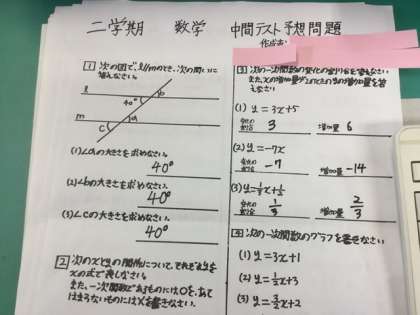 二学期 数学 中間テスト予想問題
作成者:
1 次の図で、l//mのとき、次の問いに
答えなさい。
l
40°
b
m
a
c
(1)∠aの大きさを求めなさい。
40°
(2)∠bの大きさを求めなさい。
40°
(3)∠cの大きさを求めなさい。
40°
2 次のxとyの関係について、それぞれyを
xの式で表しなさい。
また、一次関数であるものには○を、あて
はまらないものには×を書きなさい。
3 次の一次関数の変化の割合を答えなさい
また、xの増加量が2のときのyの増加量を答
えなさい
(1) y=3x+5
変化の割合 3 増加量 6
(2) y=-7x
変化の割合 -7 増加量 -14
(3) y=1/3x+1/6
変化の割合 1/3 増加量 2/3
4 次の一次関数のグラフを書きなさい
(1) y=3x+1
(2) y=1/2x+3
(3) y=3/2x+2